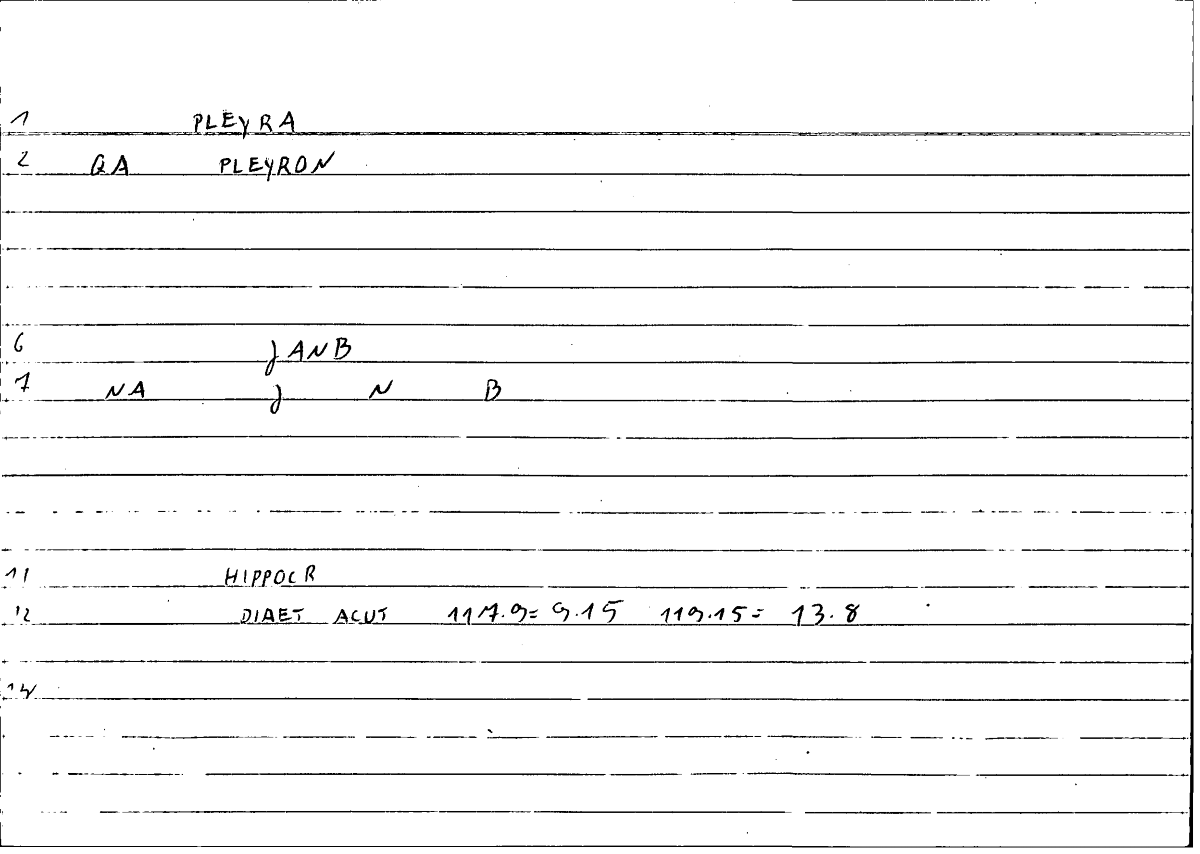 1 PLEYRA
2 QA PLEYRON
6 JANB
7 NA J N B
11 HIPPOCR
12 DIAET ACUT 117.9= 9.15 119.15= 13.8
14